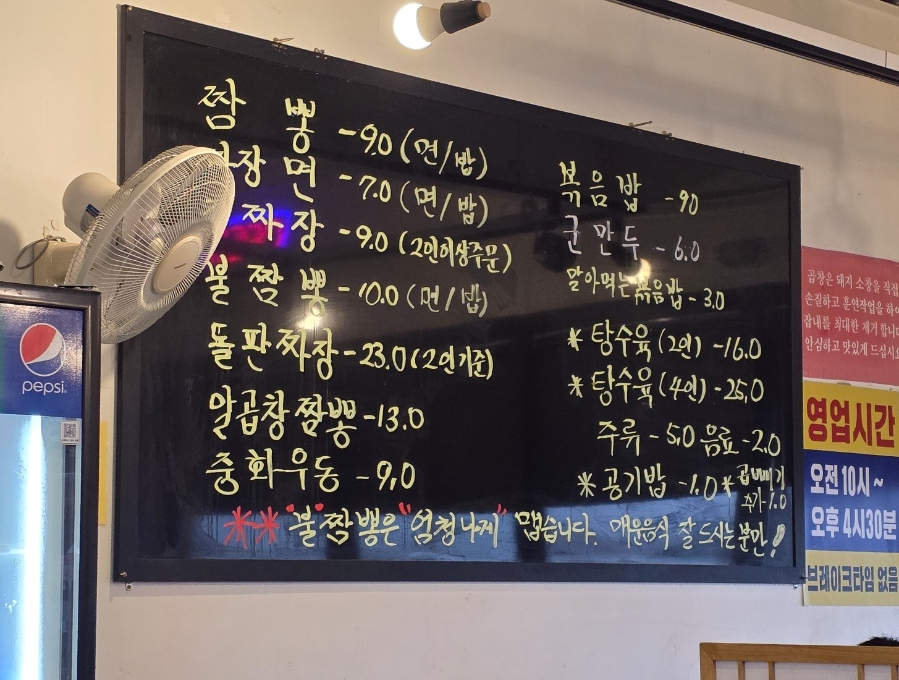 짬 뽕 -9.0 (면/밥)
장 면 -7.0 (면/밥)
짜 장 -9.0 (2인이상주문)
불 짬 뽕 -10.0 (면/밥)
돌판짜장-23.0(2인기준)
알곱창짬뽕-13.0
중화우동 -9.0
복음밥 -90
군만두 -6.0
말아먹는볶음밥-3.0
*탕수육(2인) -16.0
*탕수육(4인) -25.0
주류-5.0 음료-2.0
*공기밥 -1.0 * 곱빼기
추가 1.0
** "불"짬뽕은 "엄청나게" 맵습니다. 매운음식 잘 드시는분만!
pepsi
곱창은 돼지 소창을 직접
손질하고 훈연작업을 하여
잡내를 최대한 제거 합니다
안심하고 맛있게 드십시요
영업시간
오전 10시 ~
오후 4시30분
브레이크타임 없음